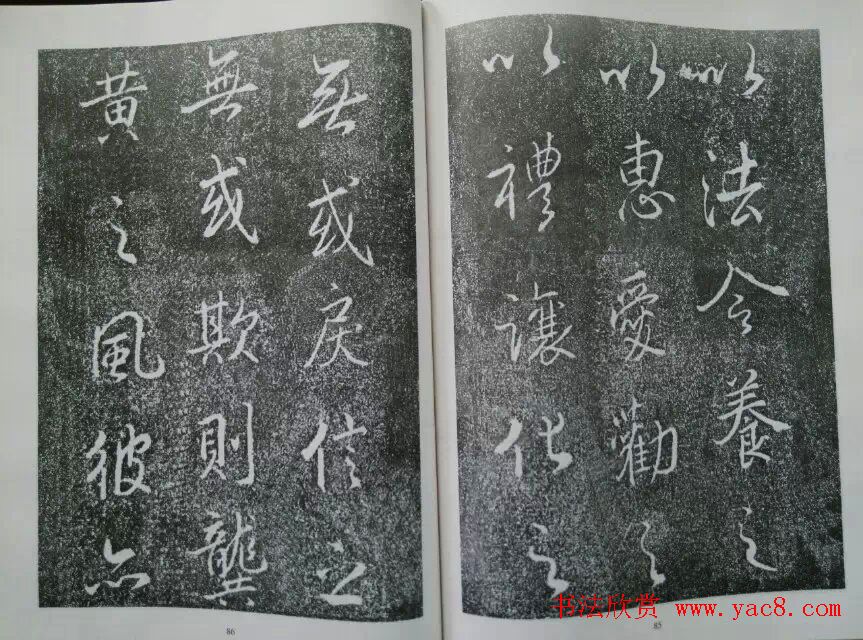 以法令養之
以惠愛勸之
以禮讓化之
無或戾信立
無或欺則龔
黄之風彼亦
85
86
书法欣赏 www.yac8.com